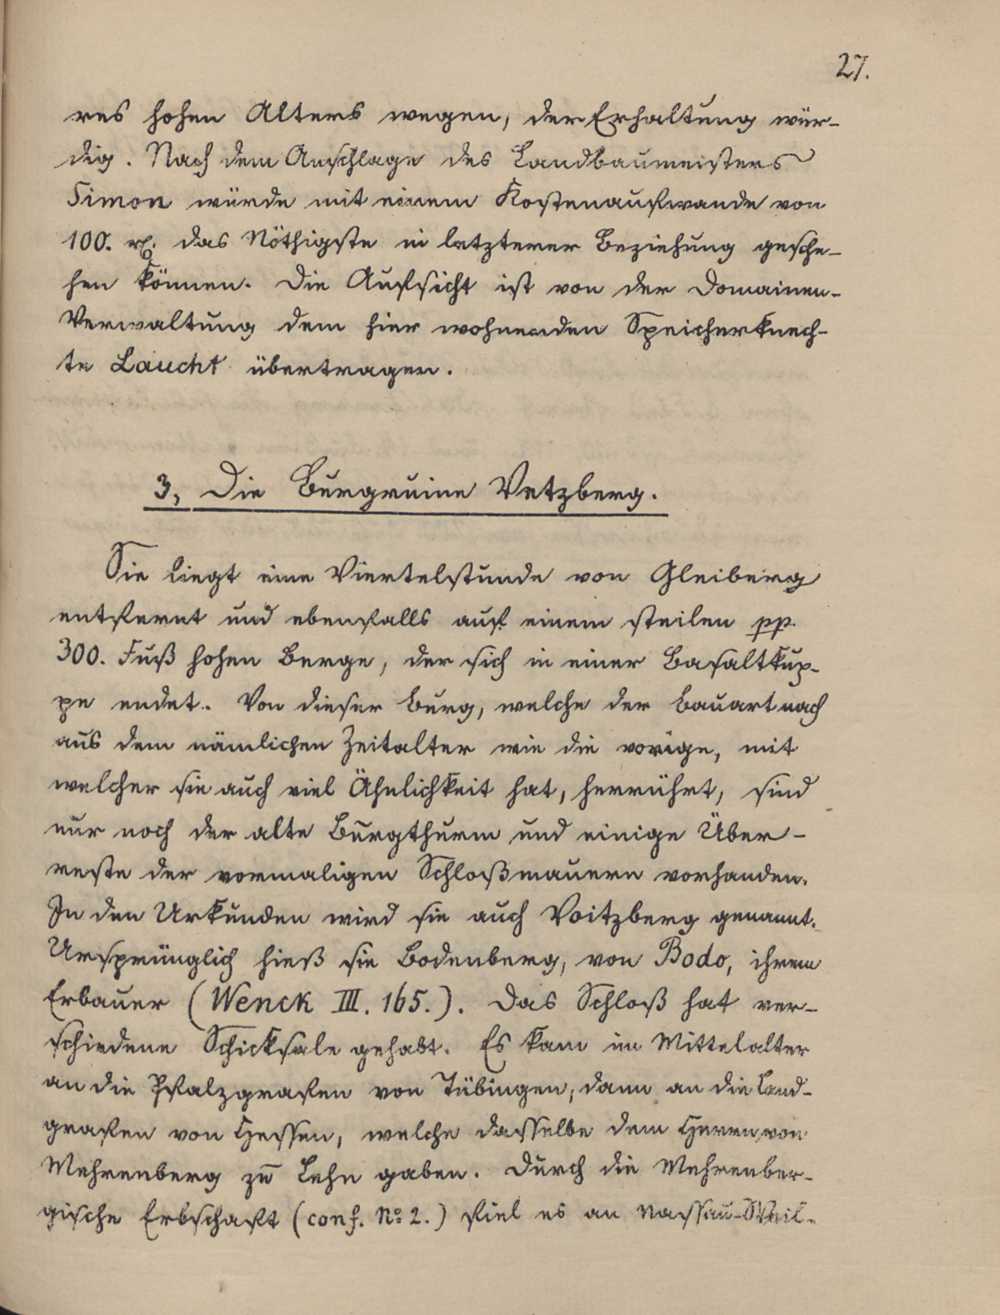 27.
res hohen Alters wegen, der Erhaltung wür-
dig. Nach dem Anschlage des Landbaumeisters
Simon würde mit einem Kostenaufwande von
100. rß. das Nöthigste in letzterer Beziehung gesche-
hen können. Die Aufsicht ist von der Domainen-
Verwaltung dem hier wohnenden Speicherknech-
te Laucht übertragen.
3, Die Burgruine Vetzberg.
Sie liegt eine Viertelstunde von Gleiberg
entfernt und ebenfalls auf einem steilen pp.
300. Fuß hohen Berge, der sich in einer Basaltkup-
pe endet. Von dieser Burg, welche der Bauart nach
aus dem nämlichen Zeitalter wie die vorige, mit
welcher sie auch viel Ähnlichkeit hat, herrührt, sind
nur noch der alte Burgthurm und einige Über-
reste der vormaligen Schloßmauern vorhanden.
In den Urkunden wird sie auch Voitzberg genannt.
Ursprünglich hieß sie Bodenberg, von Bodo, ihrem
Erbauer (Wenck III. 165.). Das Schloß hat ver-
schiedene Schicksale gehabt. Es kam im Mittelalter
an die Pfalzgrafen von Tübingen, dann an die Land-
grafen von Hessen, welche dasselbe dem Herrn von
Mehrenberg zu Lehn gaben. Durch die Mehrenber-
gische Erbschaft (conf. No. 2.) fiel es an Nassau-Weil-